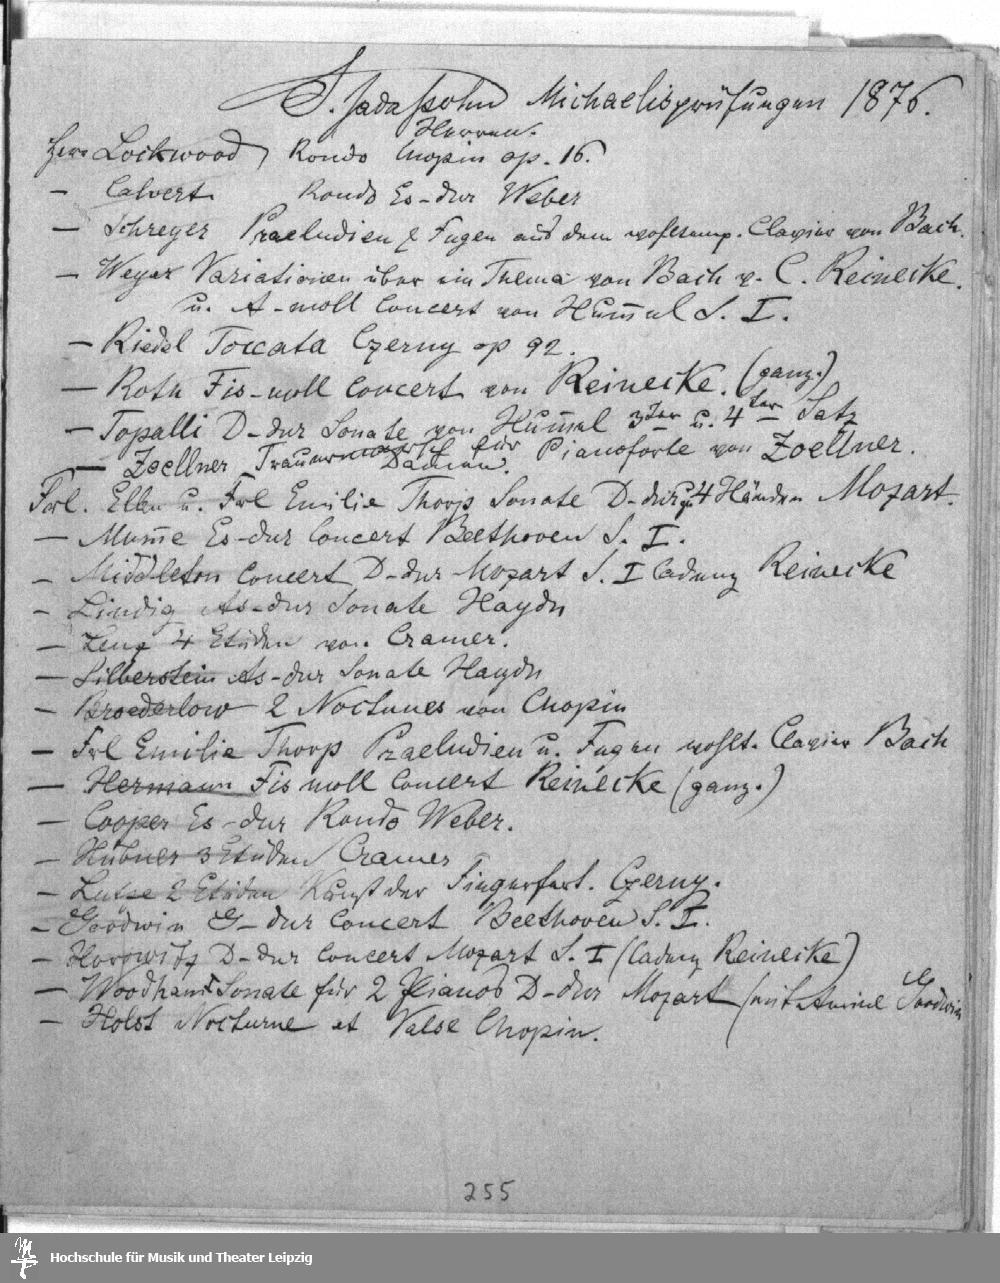 S. Jadassohn Michaelisprüfungen 1876.
Herren.
Herr Lockwood Rondo Chopin op. 16.
— Calvert Rondo Es-dur Weber
— Schreyer Praeludien & Fugen aus dem wohltemp. Clavier von Bach.
— Weyer Variationen über ein Thema von Bach v. C. Reinecke.
u. A-moll Concert von Hum̄el S. I.
— Riedel Toccata Czerny op 92.
— Roth Fis-moll Concert von Reinecke. (ganz.)
— Topalli D-dur Sonate von Hum̄el 3ter u. 4ter Satz
— Zoellner Trauermarsch für Pianoforte von Zoellner.
Damen.
Frl. Ellen u. Frl Emilie Thorp Sonate D-dur zu 4 Händen Mozart.
— Mum̄e Es-dur Concert Beethoven S. I.
— Middleton Concert D-dur Mozart S. I Cadenz Reinecke
— Lindig As-dur Sonate Haydn
— Lenz 4 Etüden von Cramer.
— Silberstein As-dur Sonate Haydn
— Broederlow 2 Nocturnes von Chopin
— Frl Emilie Thorp Praeludien u. Fugen wohlt. Clavier Bach
— Hermann Fis moll Concert Reinecke (ganz.)
— Cooper Es-dur Rondo Weber.
— Hübner 3 Etüden Cramer
— 2 Etüden Kunst der Fingerfert. Czerny.
— Goodwin G-dur Concert Beethoven S. I.
— Horowitz D-dur Concert Mozart S. I (Cadenz Reinecke)
— Sonate für 2 Pianos D-dur Mozart (mit Goodwin
— Holst Nocturne et Valse Chopin.
255
Hochschule für Musik und Theater Leipzig